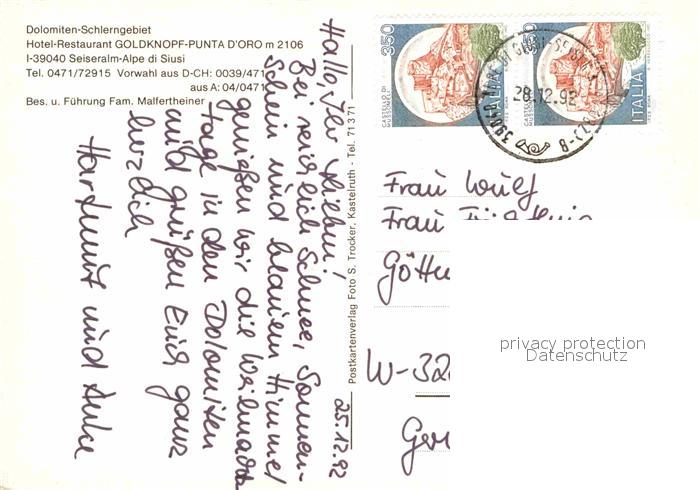 Dolomiten-Schlerngebiet
Hotel-Restaurant GOLDKNOPF-PUNTA D'ORO m 2106
I-39040 Seiseralm-Alpe di Siusi
Tel. 0471/72915 Vorwahl aus D-CH: 0039/471
aus A: 04/0471
Bes. u. Führung Fam. Malfertheiner
Hallo, Ihr Lieben!
Bei reichlich Schnee, Sonnen-
schein und blauem Himmel
genießen wir die Weihnachts
tage in den Dolomiten
und grüßen Euch ganz
herzlich
Hartmut und Anke
25.12.92
Postkartenverlag Foto S. Trocker, Kastelruth - Tel. 71371
350
CASTELLO DI MUSSOMELI
ITALIA
CASTELLO DI MUSSOMELI
ITALIA
39040
28.12.92
Frau Wulf
Frau
W-32
privacy protection
Datenschutz